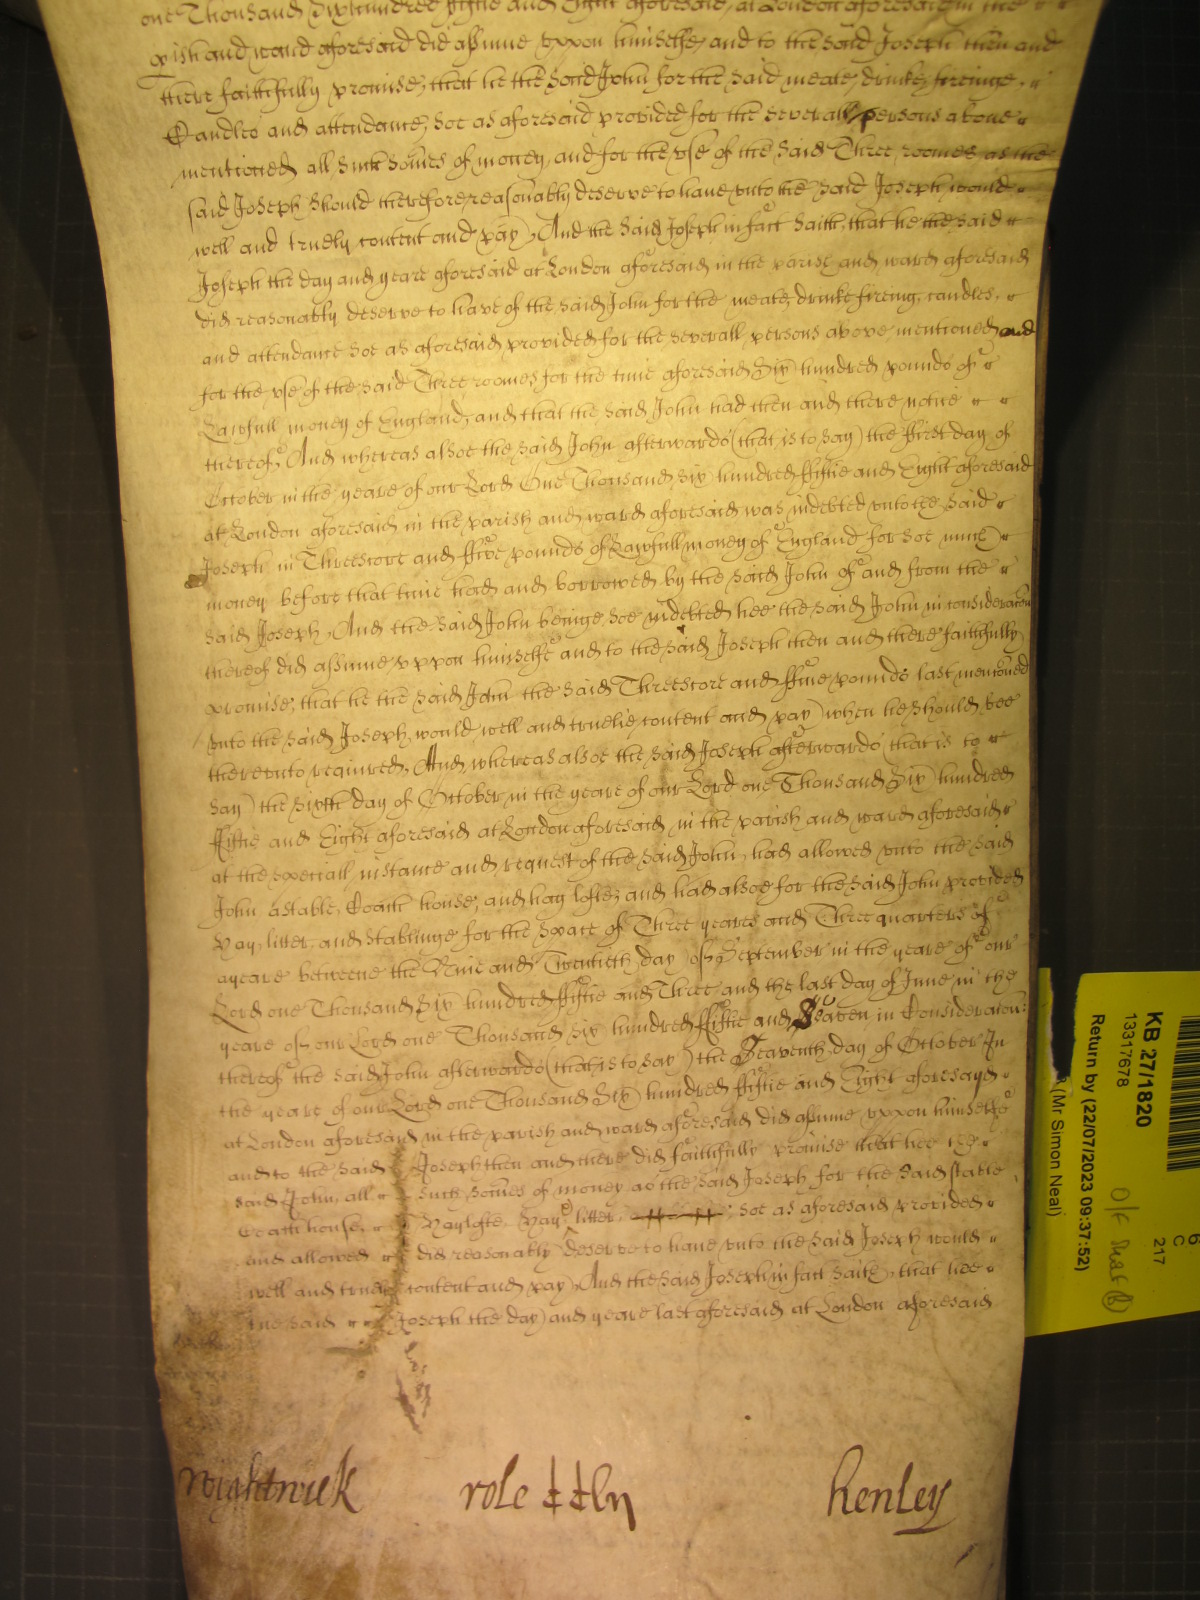 one Thousand Sixhundred fiftie and Eight aforesaid, at London aforesaid in the
pish and ward aforesaid did assume vppon himselfe, and to the said Joseph then and
there faithfully promise, that he the said John for the said meate, drinke, fireinge,
Candles and attendance, soe as aforesaid provided for the severall persons above
mentioned all such somes of money, and for the vse of the said Three roomes as the
said Joseph should therefore reasonably deserve to have vnto the said Joseph would
well and truely content and pay, And the said Joseph in fact saith, that he the said
Joseph the day and yeare aforesaid at London aforesaid in the parish and ward aforesaid
did reasonably deserve to have of the said John for the meate, drinke fireing, candles,
and attendance soe as aforesaid provided for the severall persons above mentioned and
for the vse of the said Three roomes for the time aforesaid Six hundred pounds of
Lawfull money of England, and that the said John had then and there notice
thereof, And whereas alsoe the said John afterwards (that is to say) the first day of
October in the yeare of our Lord One Thousand Six hundred fiftie and Eight aforesaid
at London aforesaid in the parish and ward aforesaid was indebted vnto the said
Joseph in Threescore and ffive pounds of Lawfull money of England for soe much
money before that time had and borrowed by the said John of and from the
said Joseph, And the said John beinge soe indebted hee the said John in consideracon
thereof did assume vppon himselfe and to the said Joseph then and there faithfully
promise, that he the said John the said Threescore and ffive pounds last mentioned
vnto the said Joseph, would well and truelie content and pay when he should bee
therevnto required, And whereas alsoe the said Joseph afterwards (that is to
say) the sixth day of October in the yeare of our Lord one Thousand Six hundred
ffiftie and Eight aforesaid at London aforesaid in the parish and ward aforesaid
at the speciall instance and request of the said John, had allowed vnto the said
John a stable, Coach house, and hay lofte, and had alsoe for the said John provided
Hay, litter, and stablinge for the space of Three yeares and Three quarters of
a yeare betweene the Nine and Twentieth day of September in the yeare of our
Lord one Thousand Six hundred ffiftie and Three and the last day of June in the
yeare of our Lord one Thousand six hundred ffiftie and Seaven in Consideracon
thereof the said John afterwards (that is to say) the Seaventh day of October In
the yeare of our Lord one Thousand Six hundred ffiftie and Eight aforesayd
at London aforesaid in the parish and ward aforesaid did assume vppon himselfe
and to the said Joseph then and there did faithfully promise that hee the
said John, all such somes of money as the said Joseph for the said stable
Coach house, Haylofte, Hay, litter, soe as aforesaid provided
and allowed did reasonably deserve to have vnto the said Joseph would
well and truely content and pay, And the said Joseph in fact saith, that hee
the said Joseph the day and yeare last aforesaid at London aforesaid
wightwick role henley
KB 27/1820
13317678
Return by (22/07/2023 09:37:52)
(Mr Simon Neal)
C
217